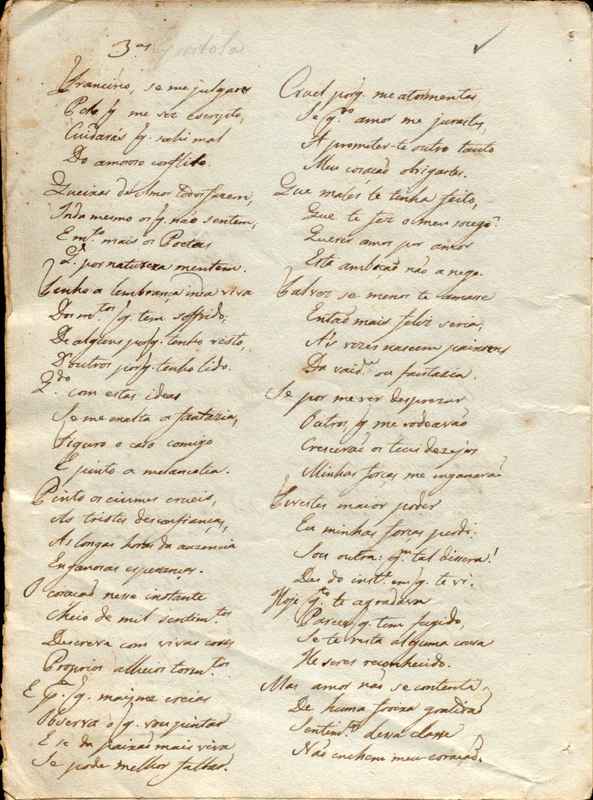 3.as Epistola
Francino, se me julgares
Pelo q̃ me vez escripto,
Cuidarás q̃. sahi mal
Do amorozo conflito.
Queixas de Amor todos fazem,
Inda mesmo os q̃. não sentem,
E m.to mais os Poetas
Q.' por natureza mentem.
Tenho a lembrança inda viva
Dos m.tos q. tem soffrido;
De alguns porq. tenho visto,
D'outros porq. tenho lido.
Q.do com estas ideas
Se me exalta a fantazia,
Figuro o cazo comigo
E pinto a melancolia.
Pinto os ciumes crueis,
As tristes desconfianças,
As longas horas da auzencia
Enganosas esperanças.
O coração nesse instante
Cheio de mil sentim.tos
Descreve com vivas cores
Proprios alheios torm.tos
E p.a q. mais me creias
Observa o q. vou pintar
E se da paixão mais viva
Se pode melhor fallar.
Cruel porq̃. me atormentas,
Se q.do amor me jurastes,
A prometer-te outro tanto
Meu coração obrigastes.
Que males te tenha feito,
Que te fez o meu socego?
Queres amor por amor
Esta ambição não a nego.
Talvez se menos te amasse
Então mais feliz seria;
As vezes nascem paixoens
Da vaid.e ou fantazia.
Se por me ver desprezar
Outros q̃ me rodeavão
Crescerão os teus dezejos
Minhas forças me enganarão
Tivestes maior poder
Eu minhas forças perdi:
Sou outra: q.m tal dissera!
Des do inst.e em q. te vi.
Hoje q.to te agradava
Parece q. tem fugido,
Se te resta alguma couza
He seres reconhecido.
Mas amor não se contenta
De huma forçoza gratidão
Sentim.tos desta classe
Não enchem meu coração.